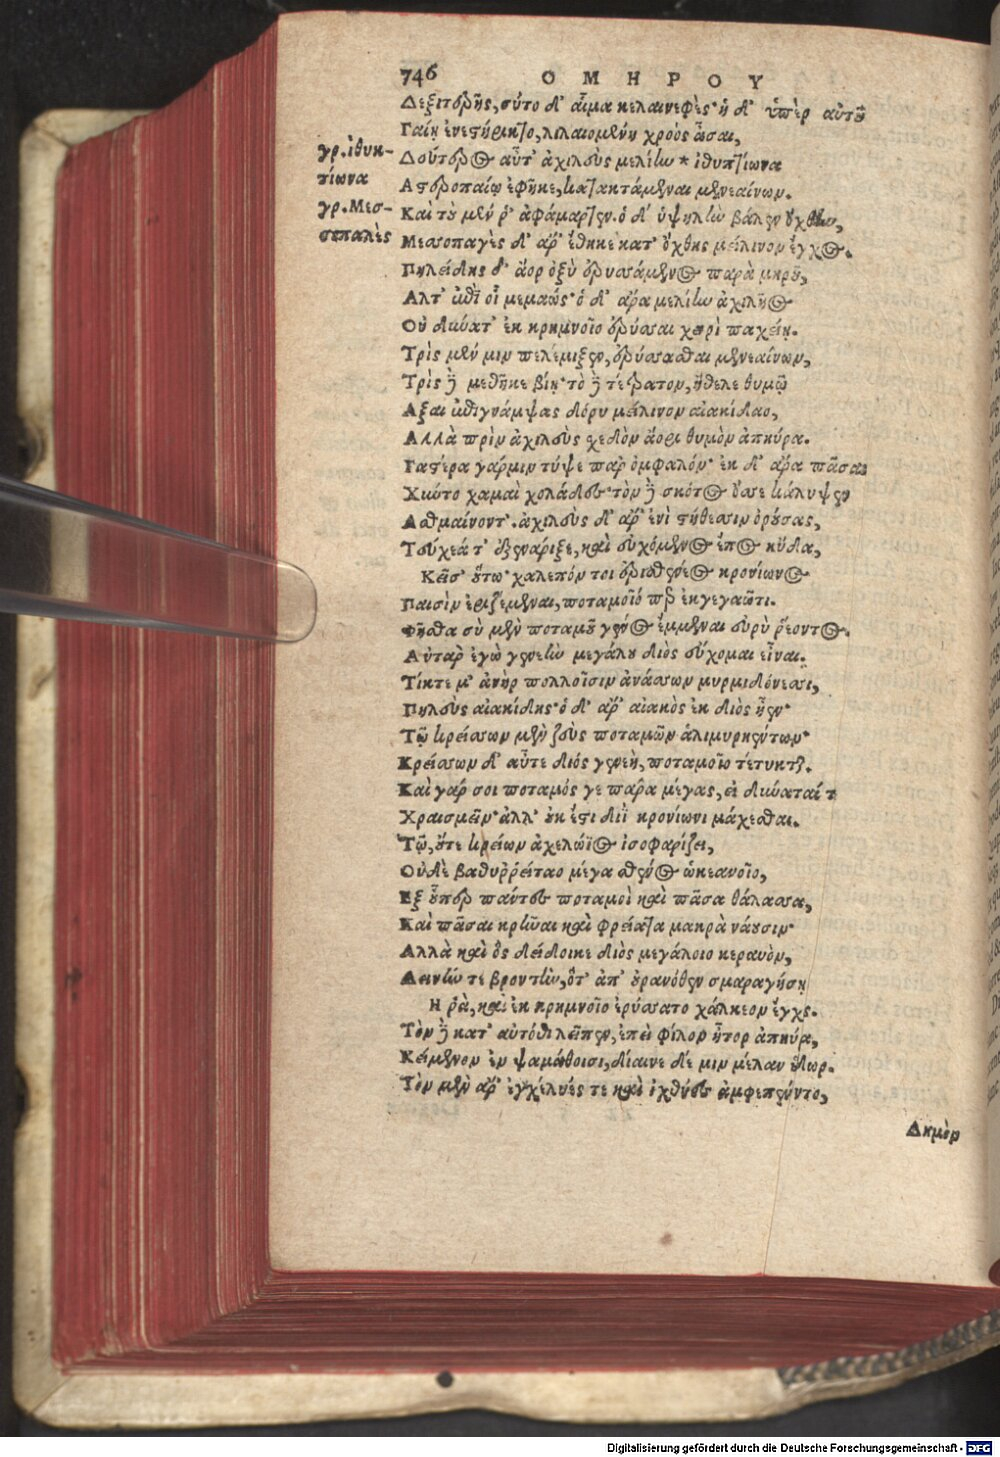 746 ΟΜΗΡΟΥ
Δεξιτερῆς, σύτο δ' αἷμα κελαινεφές· ἡ δ' ὑπὲρ αὐτοῦ
Γαίῃ ἐνεστήρικτο, λιλαιομένη χροὸς ἆσαι,
γρ. ἰθυκ-
τίωνα
Δεύτερος αὖτ' ἀχιλεὺς μελίην * ἰθυπτίωνα
Αστεροπαίῳ ἐφῆκε, κατακτάμεναι μενεαίνων.
γρ. Μεσ-
σοπαλὲς
Καὶ τοῦ μέν ῥ' ἀφάμαρτεν· ὁ δ' ὑψηλὴν βάλεν ὄχθην,
Μεσσοπαγὲς δ' ἄρ' ἔθηκε κατ' ὄχθης μείλινον ἔγχος.
Πηλείδης δ' ἄορ ὀξὺ ἐρυσσάμενος παρὰ μηροῦ,
Αλτ' ἐπὶ οἷ μεμαώς· ὁ δ' ἄρα μελίην ἀχιλῆος
Οὐ δύνατ' ἐκ κρημνοῖο ἐρύσσαι χειρὶ παχείῃ.
Τρὶς μέν μιν πελέμιξεν, ἐρύσσασθαι μενεαίνων,
Τρὶς δὲ μεθῆκε βίῃ· τὸ δὲ τέτρατον, ἤθελε θυμῷ
Αξαι ἐπιγνάμψας δόρυ μείλινον αἰακίδαο,
Αλλὰ πρὶν ἀχιλεὺς σχεδὸν ἄορι θυμὸν ἀπηύρα.
Γαστέρα γάρ μιν τύψε παρ' ὀμφαλόν· ἐκ δ' ἄρα πᾶσαι
Χύντο χαμαὶ χολάδες· τὸν δὲ σκότος ὄσσε κάλυψεν
Ασθμαίνοντ'. ἀχιλεὺς δ' ἄρ' ἐνὶ στήθεσσιν ὀρούσας,
Τεύχεά τ' ἐξενάριξε, καὶ εὐχόμενος ἔπος ηὔδα,
Κεῖσ' οὕτω· χαλεπόν τοι ἐρισθενέος κρονίωνος
Παισὶν ἐριζέμεναι, ποταμοῖό περ ἐκγεγαῶτι.
Φῆσθα σὺ μὲν ποταμοῦ γένος ἔμμεναι εὐρὺ ῥέοντος.
Αὐτὰρ ἐγὼ γενεὴν μεγάλου διὸς εὔχομαι εἶναι.
Τίκτε μ' ἀνὴρ πολλοῖσιν ἀνάσσων μυρμιδόνεσσι,
Πηλεὺς αἰακίδης· ὁ δ' ἄρ' αἰακὸς ἐκ διὸς ἦεν·
Τῷ κρείσσων μὲν ζεὺς ποταμῶν ἁλιμυρηέντων·
Κρείσσων δ' αὖτε διὸς γενεὴ, ποταμοῖο τέτυκται.
Καὶ γάρ σοι ποταμός γε πάρα μέγας, εἰ δύναταί τι
Χραισμεῖν· ἀλλ' οὐκ ἔστι διὶ κρονίωνι μάχεσθαι.
Τῷ, οὔτε κρείων ἀχελώϊος ἰσοφαρίζει,
Οὐδὲ βαθυῤῥείταο μέγα σθένος ὠκεανοῖο,
Εξ οὗπερ πάντες ποταμοὶ καὶ πᾶσα θάλασσα,
Καὶ πᾶσαι κρῆναι καὶ φρείατα μακρὰ νάουσιν·
Αλλὰ καὶ ὃς δείδοικε διὸς μεγάλοιο κεραυνὸν,
Δεινήν τε βροντὴν, ὅτ' ἀπ' οὐρανόθεν σμαραγήσῃ
Η ῥὰ, καὶ ἐκ κρημνοῖο ἐρύσσατο χάλκεον ἔγχος.
Τὸν δὲ κατ' αὐτόθι λεῖπεν, ἐπεὶ φίλον ἦτορ ἀπηύρα,
Κείμενον ἐν ψαμάθοισι, δίαινε δέ μιν μέλαν ὕδωρ.
Τὸν μὲν ἄρ' ἐγχέλυές τε καὶ ἰχθύες ἀμφεπένοντο,
Δημὸν
Digitalisierung gefördert durch die Deutsche Forschungsgemeinschaft - DFG